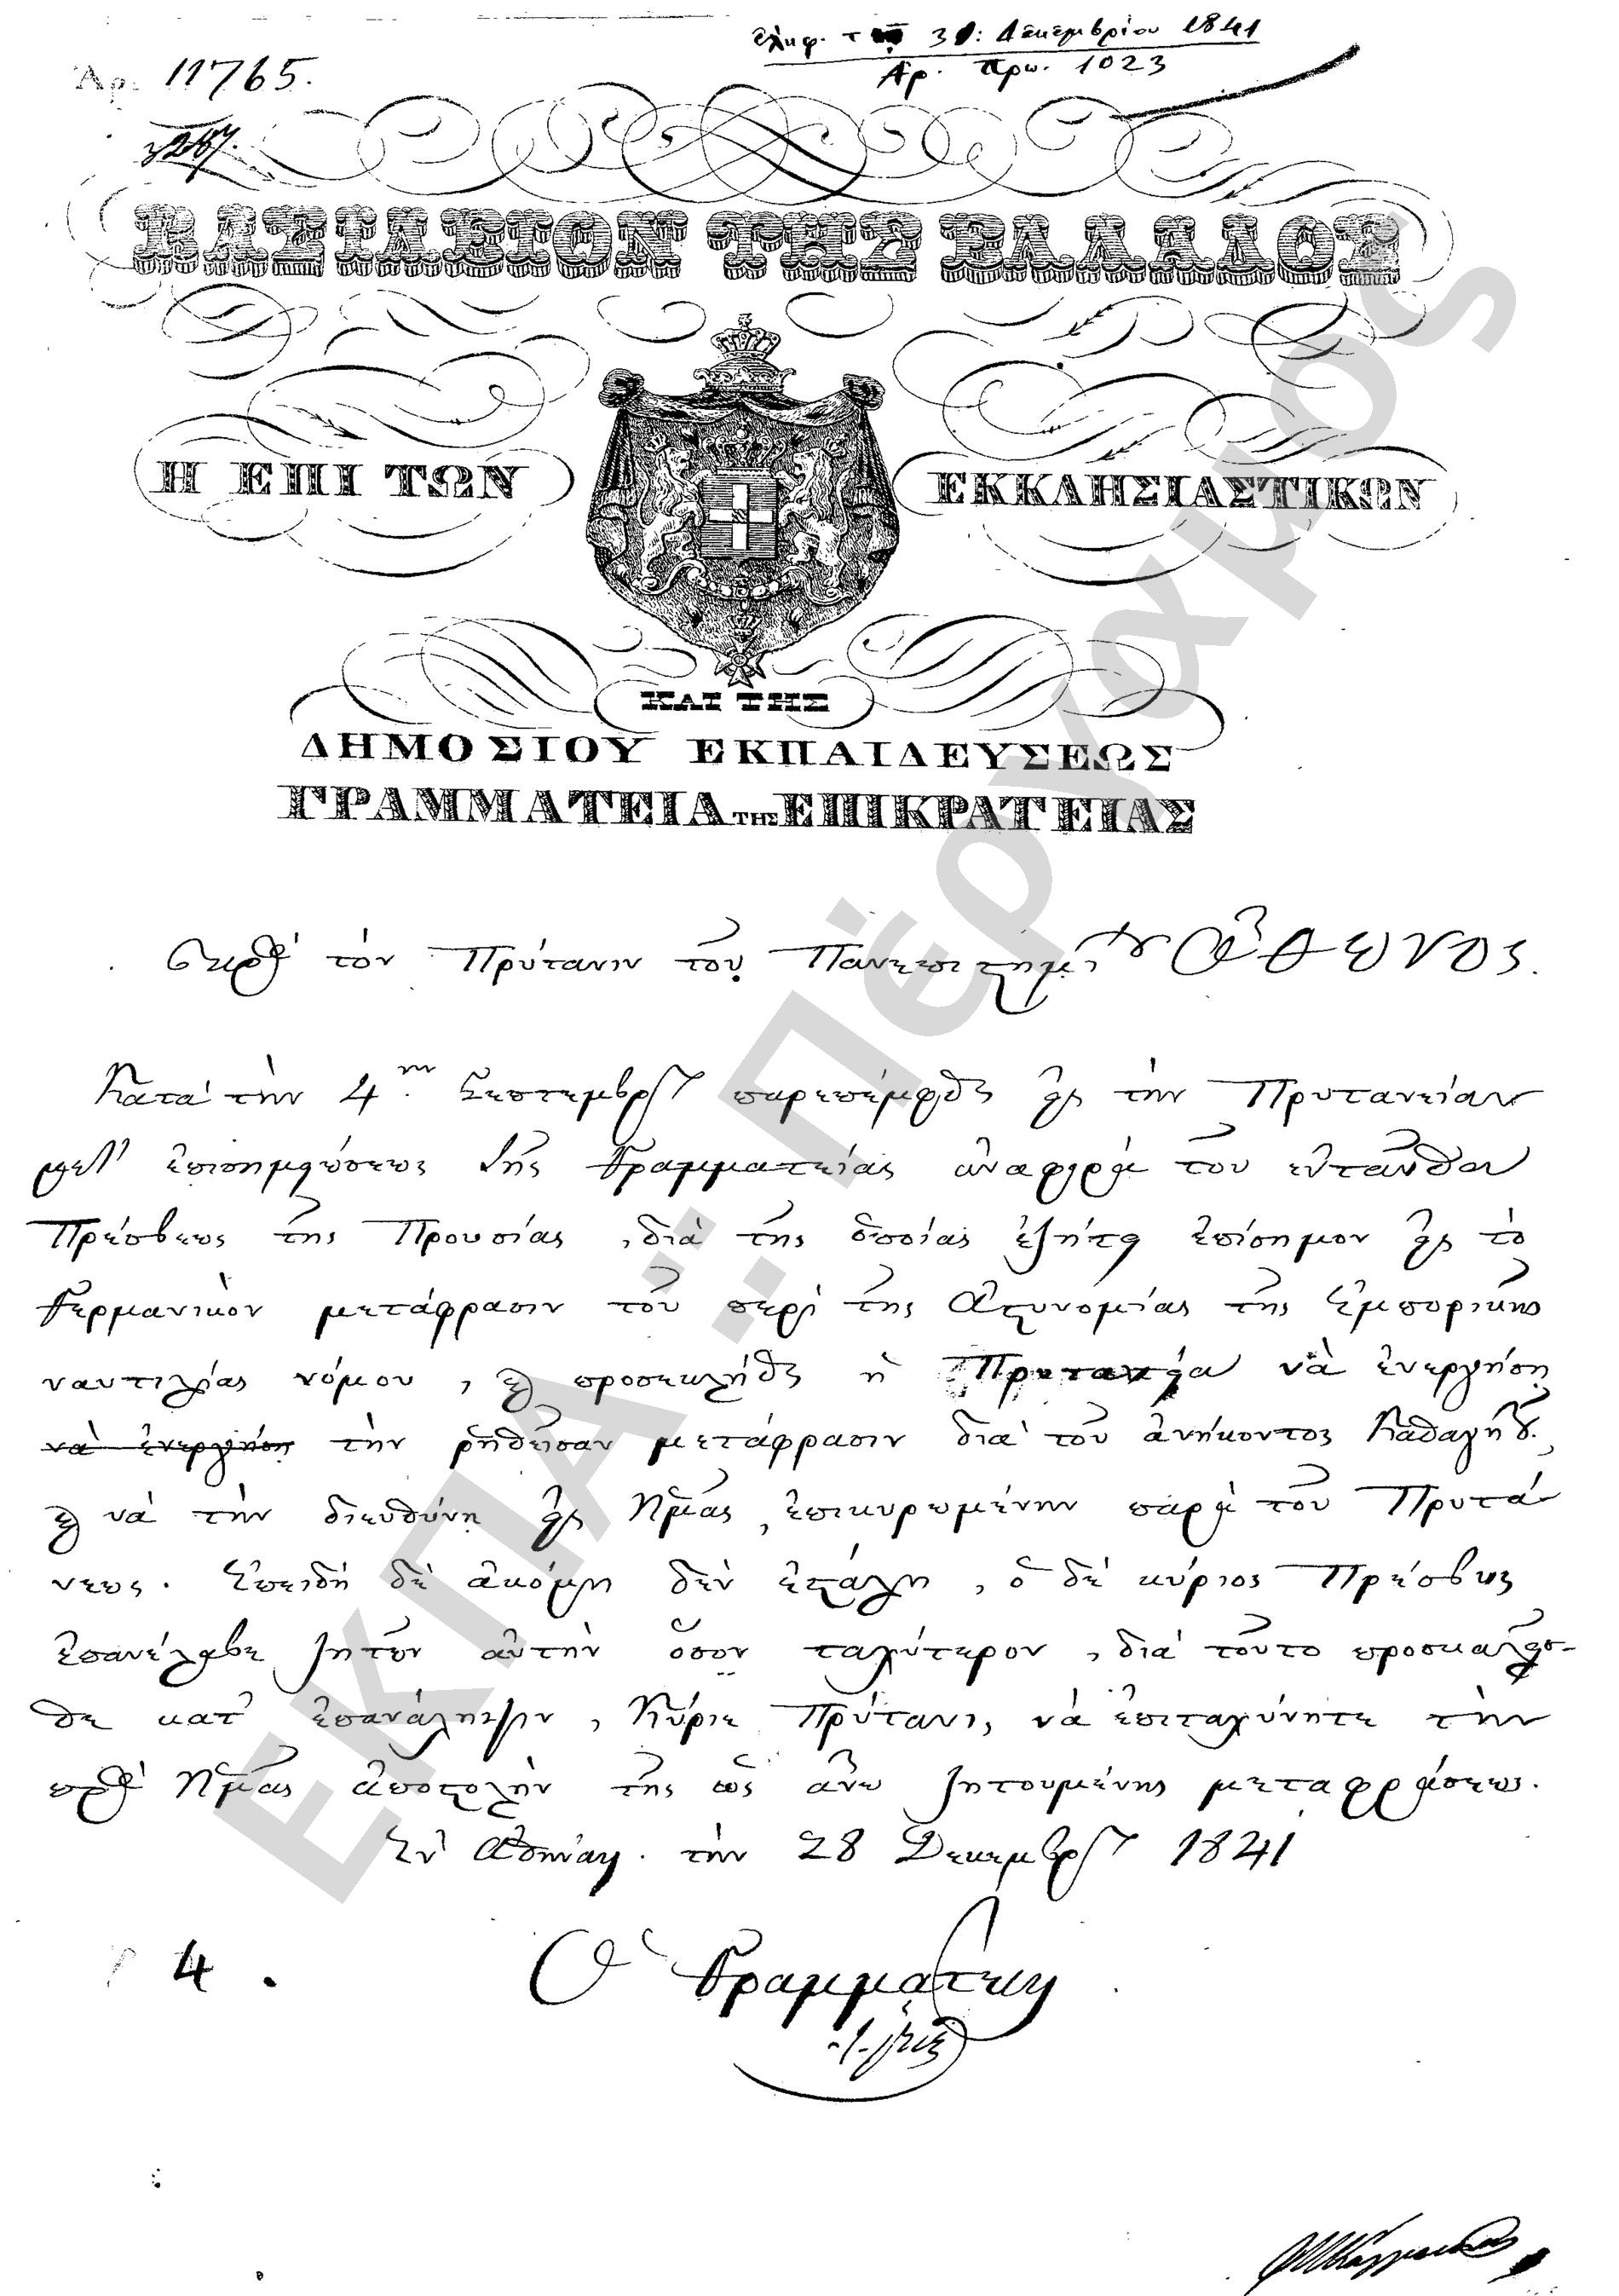 Ἀρ. 11765.
ἐλήφ. τ 31: Δεκεμβρίου 1841
Ἀρ. πρω. 1023
ΒΑΣΙΛΕΙΟΝ ΤΗΣ ΕΛΛΑΔΟΣ
Η ΕΠΙ ΤΩΝ ΕΚΚΛΗΣΙΑΣΤΙΚΩΝ
ΚΑΙ ΤΗΣ
ΔΗΜΟΣΙΟΥ ΕΚΠΑΙΔΕΥΣΕΩΣ
ΓΡΑΜΜΑΤΕΙΑ ΤΗΣ ΕΠΙΚΡΑΤΕΙΑΣ
Πρὸς τὸν Πρύτανιν τοῦ Πανεπιστημίου Ὄθωνος.
Κατὰ τὴν 4ην Σεπτεμβρίου παρεπέμφθη εἰς τὴν Πρυτανείαν
μετ' ἐπισημειώσεως τῆς Γραμματείας ἀναφορὰ τοῦ ἐνταῦθα
Πρέσβεως τῆς Προυσίας, διὰ τῆς ὁποίας ἐζήτει ἐπίσημον εἰς τὸ
Γερμανικὸν μετάφρασιν τοῦ περὶ τῆς Ἀστυνομίας τῆς Ἐμπορικῆς
ναυτιλίας νόμου, καὶ προσεκλήθη ἡ Πρυτανεία νὰ ἐνεργήσῃ
νὰ ἐνεργήσῃ τὴν ῥηθεῖσαν μετάφρασιν διὰ τοῦ ἀνήκοντος Καθηγητοῦ.
καὶ νὰ τὴν διευθύνῃ εἰς Ἡμᾶς, ἐπικυρωμένην παρὰ τοῦ Πρυτά
νεως. Ἐπειδὴ δὲ ἀκόμη δὲν ἐστάλη, ὁ δὲ κύριος Πρέσβυς
ἐπανέλαβε ζητῶν αὐτὴν ὅσον ταχύτερον, διὰ τοῦτο προσκαλεῖσ-
θε κατ' ἐπανάληψιν, Κύριε Πρύτανι, νὰ ἐπιταχύνητε τὴν
πρὸς Ἡμᾶς ἀποστολὴν τῆς ὡς ἄνω ζητουμένης μεταφράσεως.
Ἐν Ἀθήναις. τὴν 28 Δεκεμβρίου 1841
4.
Ὁ Γραμματεὺς
ΕΚΠΑ :: Πέργαμος